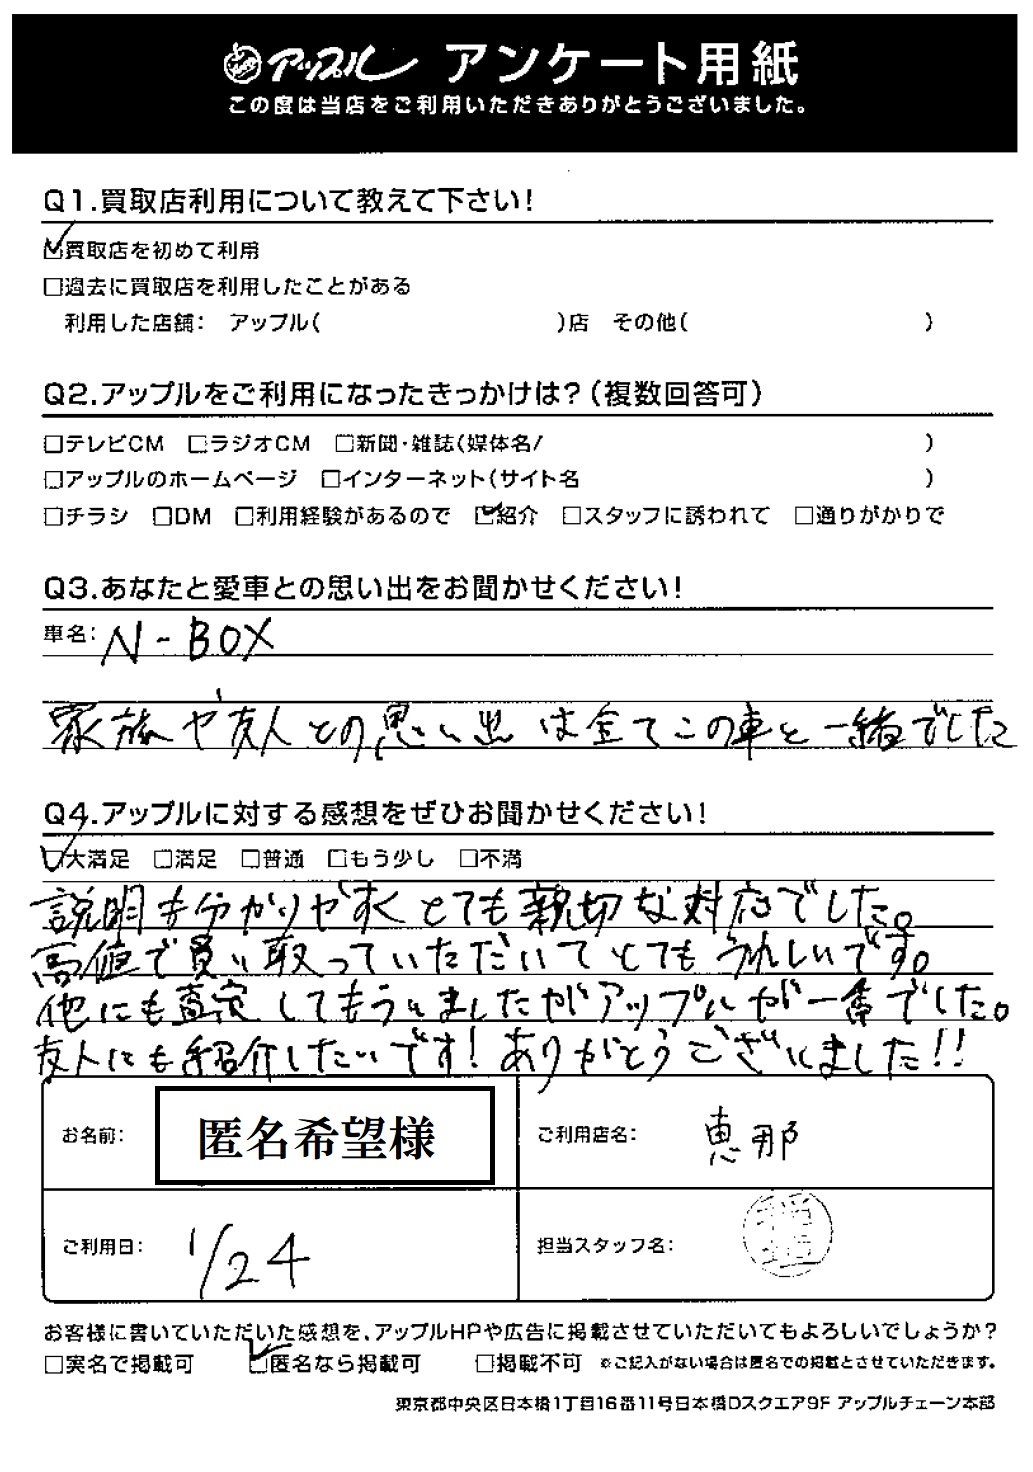 アップル アンケート用紙
この度は当店をご利用いただきありがとうございました。
Q1.買取店利用について教えて下さい!
☑買取店を初めて利用
□過去に買取店を利用したことがある
利用した店舗: アップル( )店 その他( )
Q2.アップルをご利用になったきっかけは?(複数回答可)
□テレビCM □ラジオCM □新聞・雑誌(媒体名/ )
□アップルのホームページ □インターネット(サイト名 )
□チラシ □DM □利用経験があるので ☑紹介 □スタッフに誘われて □通りがかりで
Q3.あなたと愛車との思い出をお聞かせください!
車名: N-BOX
家族や友人との思い出は全てこの車と一緒でした
Q4.アップルに対する感想をぜひお聞かせください!
☑大満足 □満足 □普通 □もう少し □不満
説明も分かりやすくとても親切な対応でした。
高値で買い取っていただいてとてもうれしいです。
他にも査定してもらいましたがアップルが一番でした。
友人にも紹介したいです!ありがとうございました!!
お名前: 匿名希望様 ご利用店名: 恵那
ご利用日: 1/24 担当スタッフ名:
お客様に書いていただいた感想を、アップルHPや広告に掲載させていただいてもよろしいでしょうか?
□実名で掲載可 ☑匿名なら掲載可 □掲載不可 ※ご記入がない場合は匿名での掲載とさせていただきます。
東京都中央区日本橋1丁目16番11号日本橋Dスクエア9F アップルチェーン本部